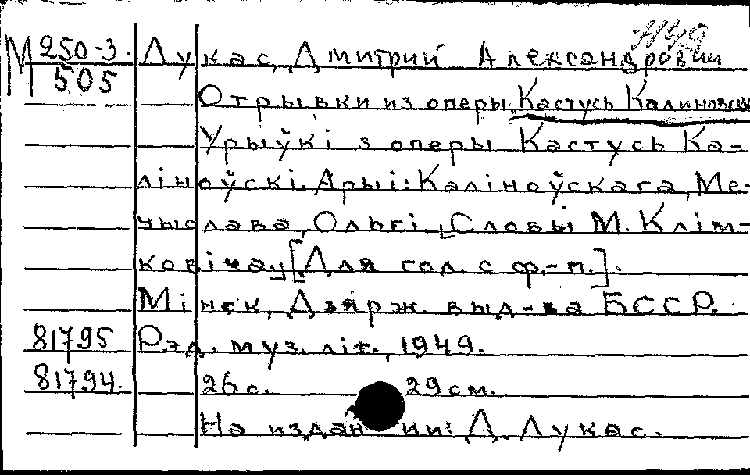 М 250-3 Лукас, Дмитрий Александрович
505 Отрывки из оперы Кастусь Калиновский
Урыўкі з оперы Кастусь Ка-
ліноўскі. Арыі: Каліноўскага, Ме-
чыслава, Ольгі. Словы М. Клім-
ковіча. [Для гол. с ф.-п.].
Мінск, Дзярж. выд-ва БССР.
81795 Рэд. муз. літ., 1949.
81794. 26 с. 29 см.
На издании: Д. Лукас.